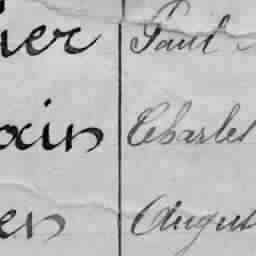 her Paul
xin Charles
en August